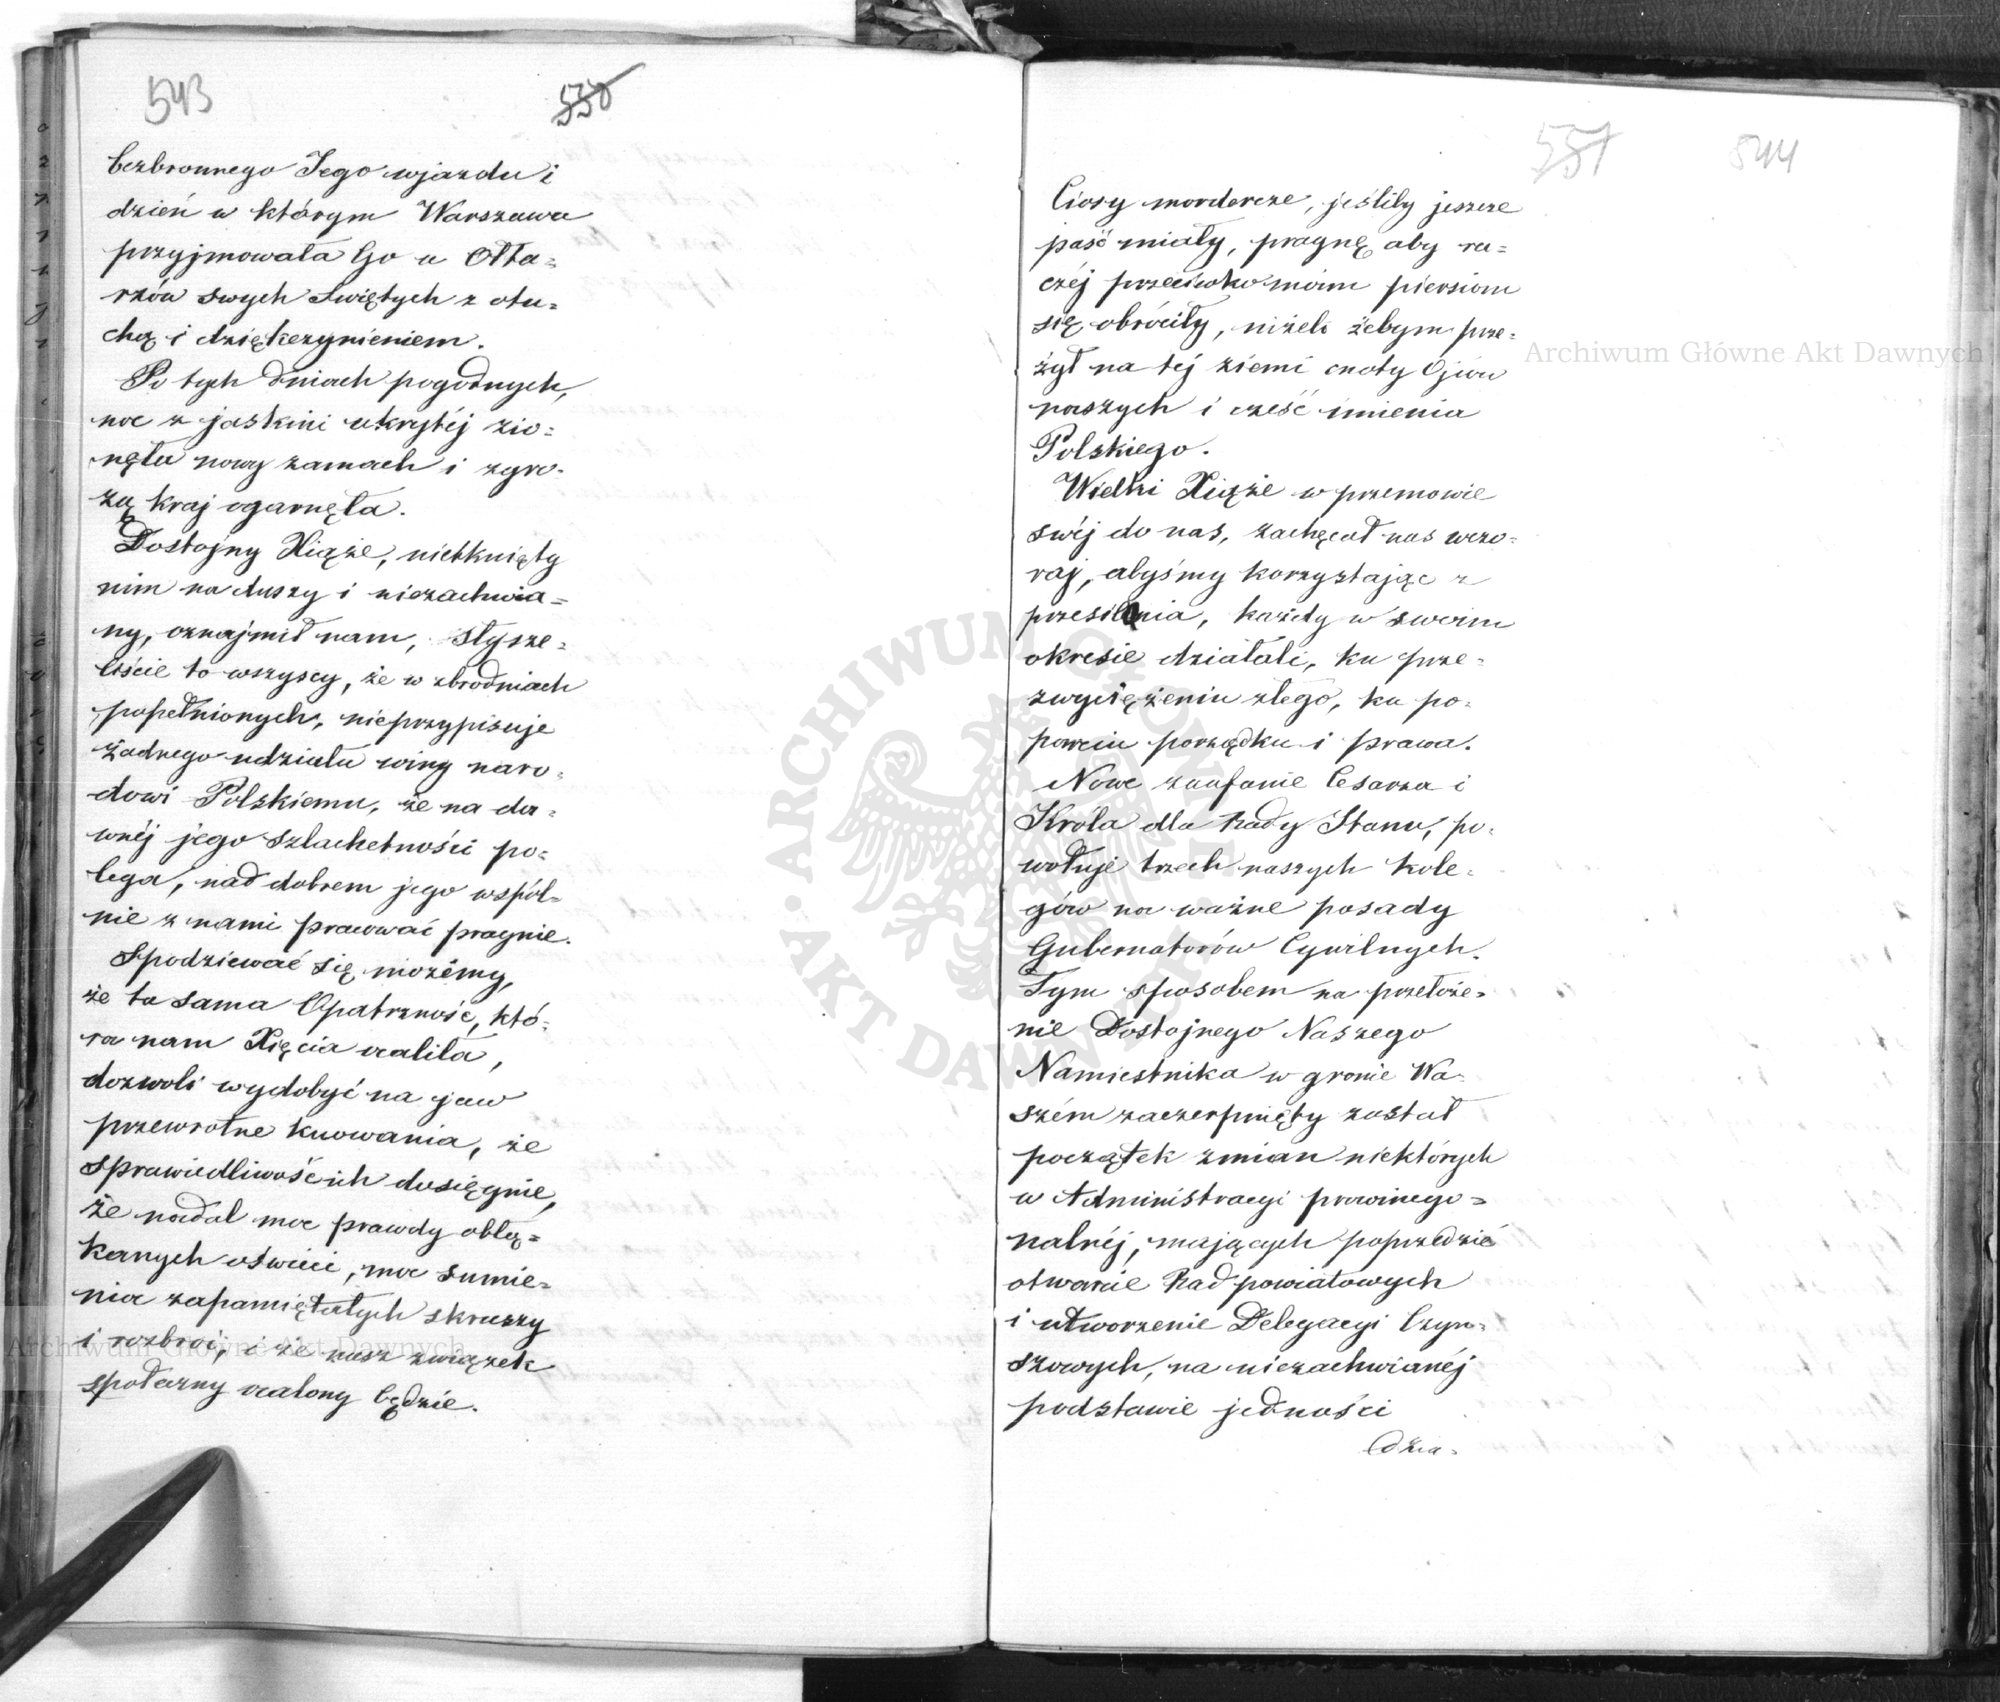 543
bezbronnego Jego wjazdu i
dzień w którym Warszawa
przyjmowała Go u Ołta=
rzów swych Świętych z otu=
chą i dziękczynieniem.
Po tych dniach pogodnych,
noc z jaskini ukrytéj zio=
nęła nowy zamach i zgro=
zą kraj ogarnęła.
Dostojny Xiąże, nietknięty
nim na duszy i niezachwia=
ny, oznajmił nam, słysze=
liście to wszyscy, że w zbrodniach
popełnionych, nieprzypisuje
żadnego udziału winy naro=
dowi Polskiemu, że na da=
wnéj jego szlachetności po=
lega, nad dobrem jego wspól=
nie z nami pracować pragnie.
Spodziewać się możémy,
że ta sama Opatrzność, któ=
ra nam Xięcia ocaliła,
dozwoli wydobyć na jaw
przewrotne knowania, że
sprawiedliwość ich dosięgnie,
że nadal moc prawdy obłą=
kanych oświeci, moc sumie=
nia zapamiętałych skruszy
i rozbroi, i że nasz związek
społeczny ocalony będzie.
544
Ciosy mordercze, jeśliby jeszcze
paść miały, pragnę aby ra=
czéj przeciwko moim piersiom
się obróciły, niżeli żebym prze=
żył na téj ziemi cnoty Ojców
naszych i cześć imienia
Polskiego.
Wielki Xiąże w przemowie
swéj do nas, zachęcał nas wczo=
raj, abyśmy korzystając z
przesilenia, każdy w swoim
okresie działali, ku prze=
zwyciężeniu złego, ku po=
parciu porządku i prawa.
Nowe zaufanie Cesarza i
Króla dla Rady Stanu, po=
wołuje trzech naszych kole=
gów na ważne posady
Gubernatorów Cywilnych.
Tym sposobem na przełoże=
nie Dostojnego Naszego
Namiestnika w gronie Wa=
szém zaczerpnięty został
początek zmian niektórych
w Administracyi prowincyo=
nalnéj, mających poprzedzić
otwarcie Rad powiatowych
i utworzenie Delegacyi Czyn=
szowych, na niezachwianéj
podstawie jedności
dzia=
Archiwum Główne Akt Dawnych
Archiwum Główne Akt Dawnych
ARCHIWUM GŁÓWNE · AKT DAWNYCH ·